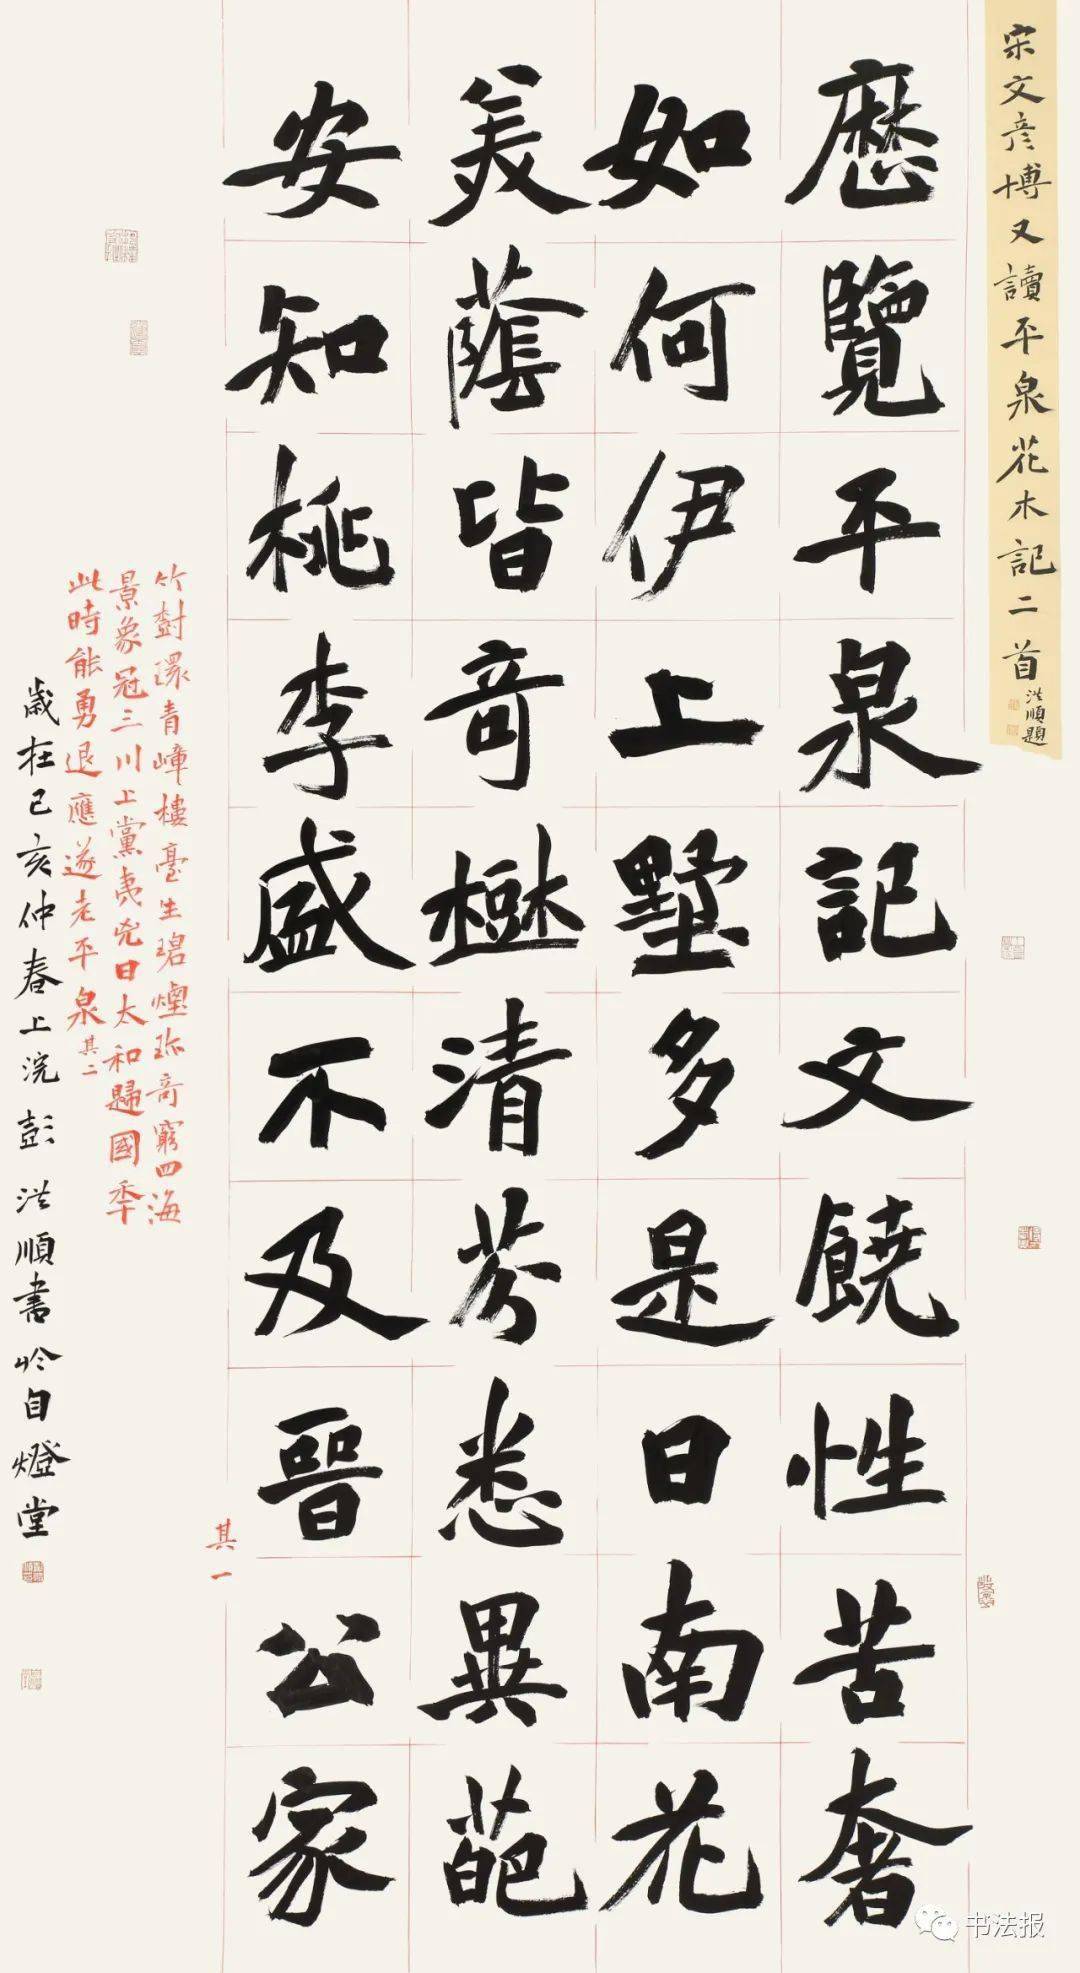 宋文彦博又讀平泉花木記二首
洪順題
歷覽平泉記文饒性苦奢
如何伊上墅多是日南花
美蔭皆奇樾清芬悉異葩
安知桃李盛不及晉公家
其一
竹對環青嶂樓臺生碧煙珎奇窮四海
景象冠三川上黨夷兇日太和歸國年
此時能勇退應遂老平泉其二
歲在己亥仲春上浣彭洪順書於自燈堂
书法报